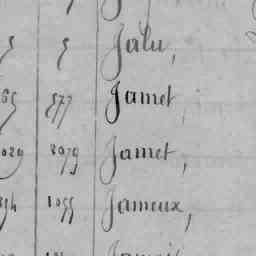 5 5 Jalu,
65 577 Jamet,
2079 Jamet,
1055 Jameux,